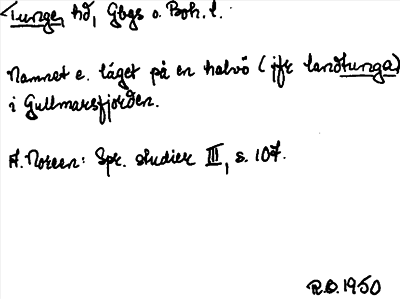 <Tunge, hd, Gbgs o. Boh. l.
Namnet e. läget på en halvö (jfr landtunga)
i Gullmarsfjorden.
A. Noreen: Spr. studier III, s. 107.
R.O. 1950